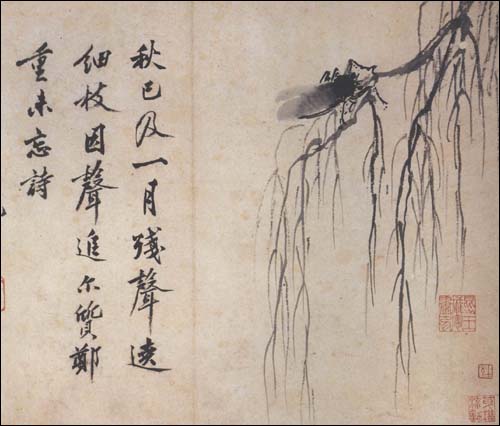 秋已及一月殘聲遶
細枝因聲追尔質鄭
重未忘詩